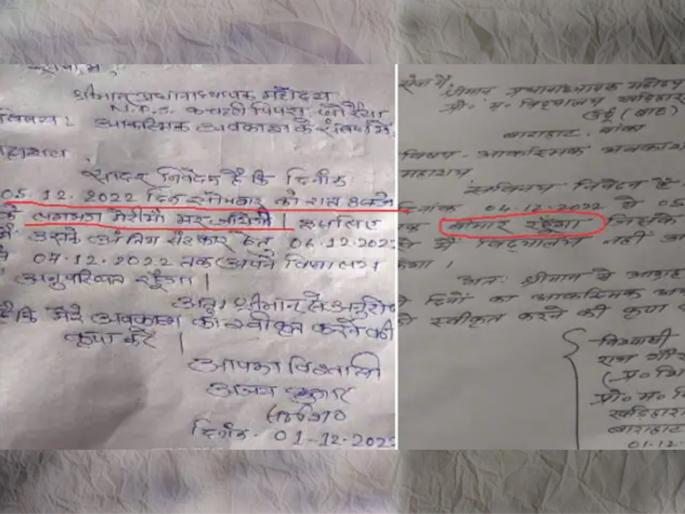 श्रीमान प्रधानाध्यापक महोदय
N.P.S. कचारी पिपरा,
विषय: आकस्मिक अवकाश के संबंध में।
महाशय,
सादर निवेदन है कि दिनांक
05.12.2022 दिन सोमवार को रात 8 बजे
के लगभग मेरी माँ मर जायेगी। इसलिए
मैं उसके अंतिम संस्कार हेतु 06.12.2022
से 07.12.2022 तक अपने विद्यालय
से अनुपस्थित रहूँगा।
अतः श्रीमान से अनुरोध
है कि मेरे अवकाश को स्वीकृत करने की
कृपा करें।
आपका विश्वासी
अजय कुमार
दिनांक- 01-12-2022
सेवा में,
श्रीमान प्रधानाध्यापक महोदय
प्रो० म० विद्यालय खडिहारा
उर्दू (बाट)
बाराहाट, बांका
विषय- आकस्मिक अवकाश
महाशय
सविनय निवेदन है
दिनांक 04.12.2022 से 05
तक बीमार रहूँगा जिसके
से मैं विद्यालय नहीं आ
अतः श्रीमान से आग्रह
दिनों का आकस्मिक
को स्वीकृत करने की कृपा
विश्वासी
राज
प्रो० म० वि
खडिहारा
बाराहाट
01-12-